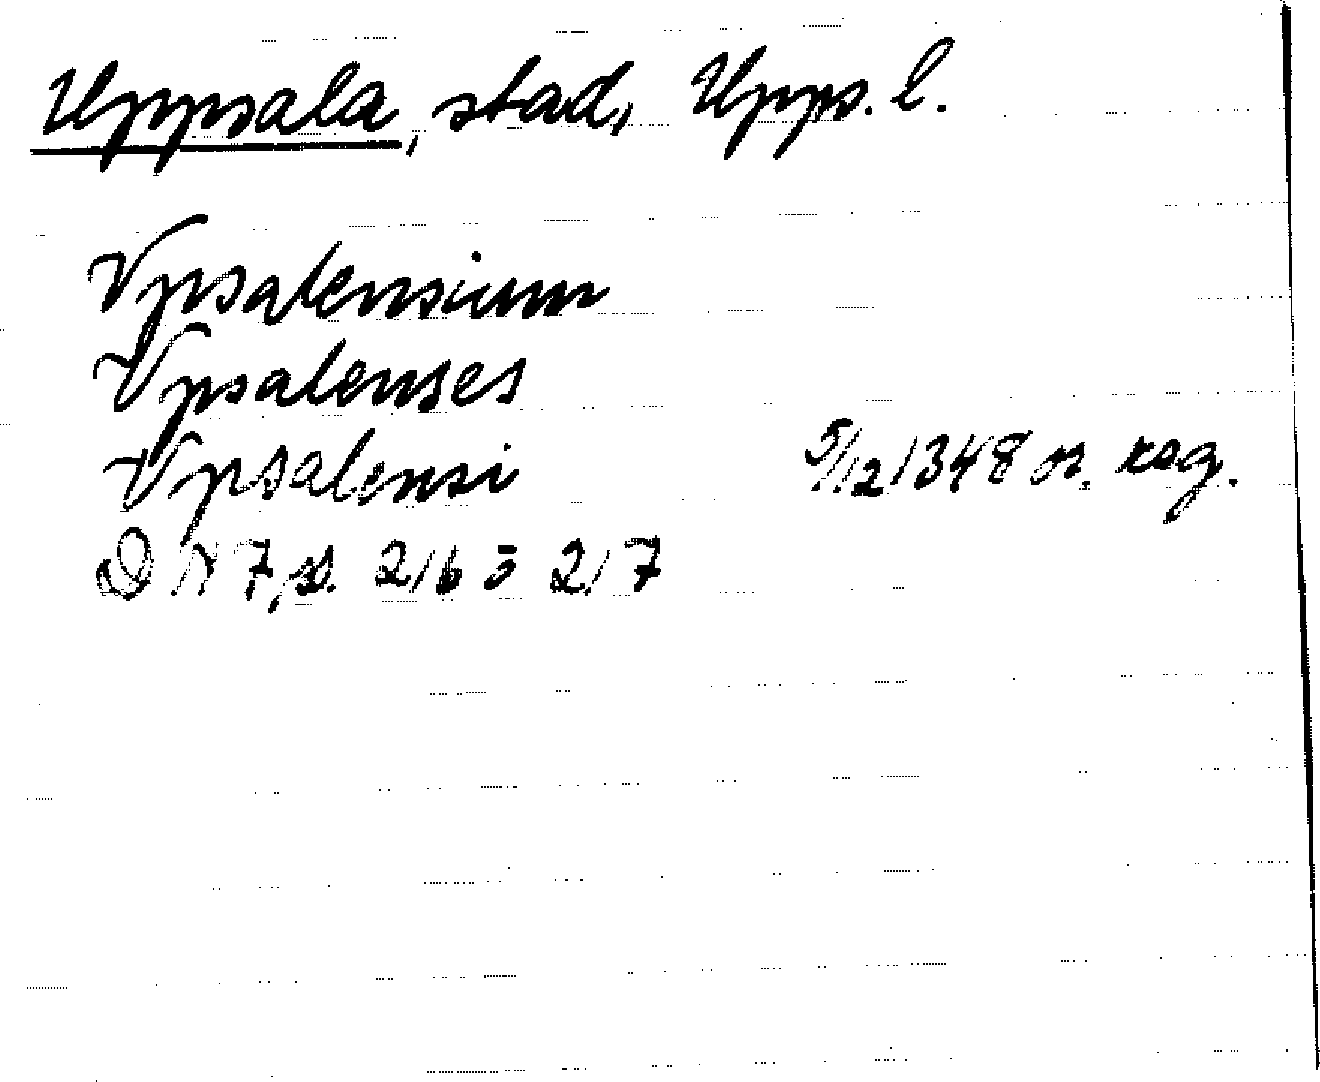 Uppsala, stad, Upps. l.
Vpsalensium
Vpsalenses
Vpsalensi 5/12 1348 or. reg.
D N 7, s. 216 o 217